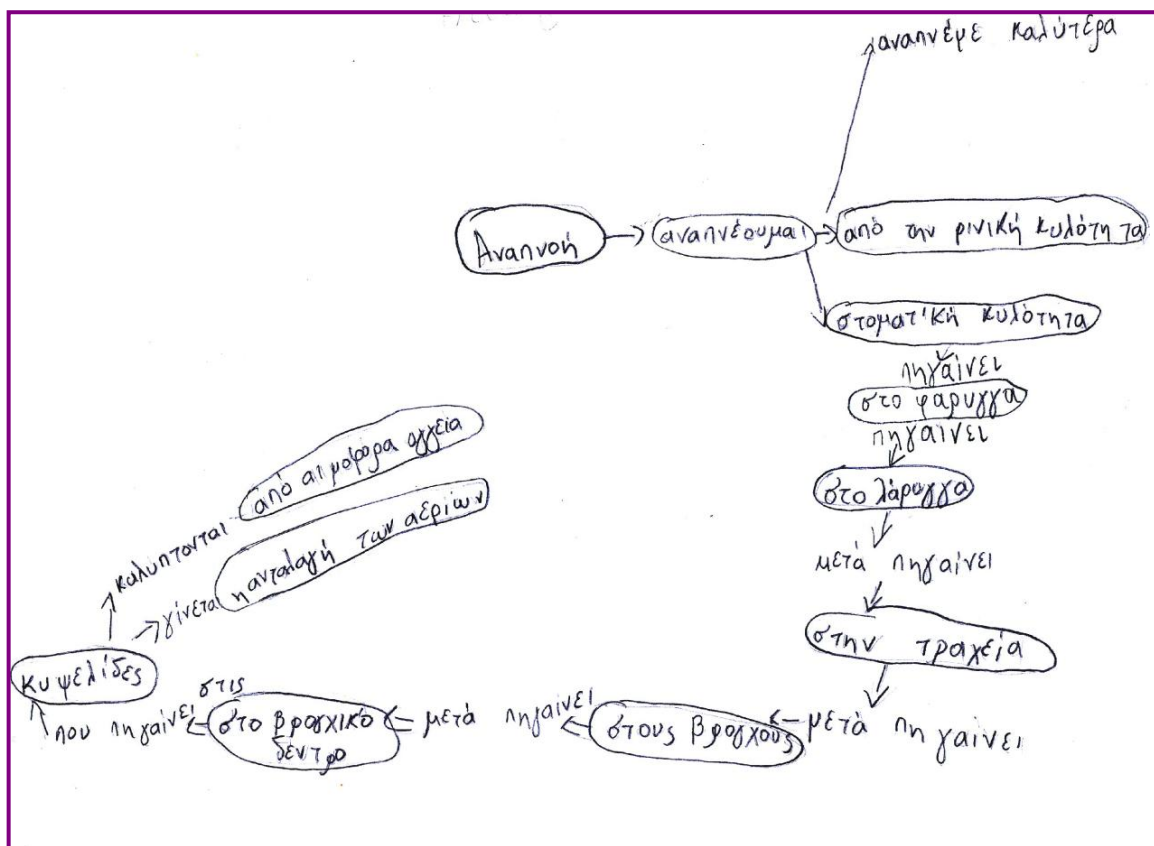 αναπνέμε καλύτερα
Αναπνοή
αναπνέουμαι
από την ρινική κυλότητα
στοματική κυλότητα
πηγαίνει
στο φαρυγγα
πηγαίνει
στο λάρυγγα
μετά πηγαίνει
στην τραχεία
μετά πηγαίνει
στους βρογχους
μετά πηγαίνει
στο βρογχικό
δέντρο
που πηγαίνει
στις
κυψελίδες
καλυπτονται
από αιμοφορα αγγεία
γίνεται
η ανταλαγή των αερίων